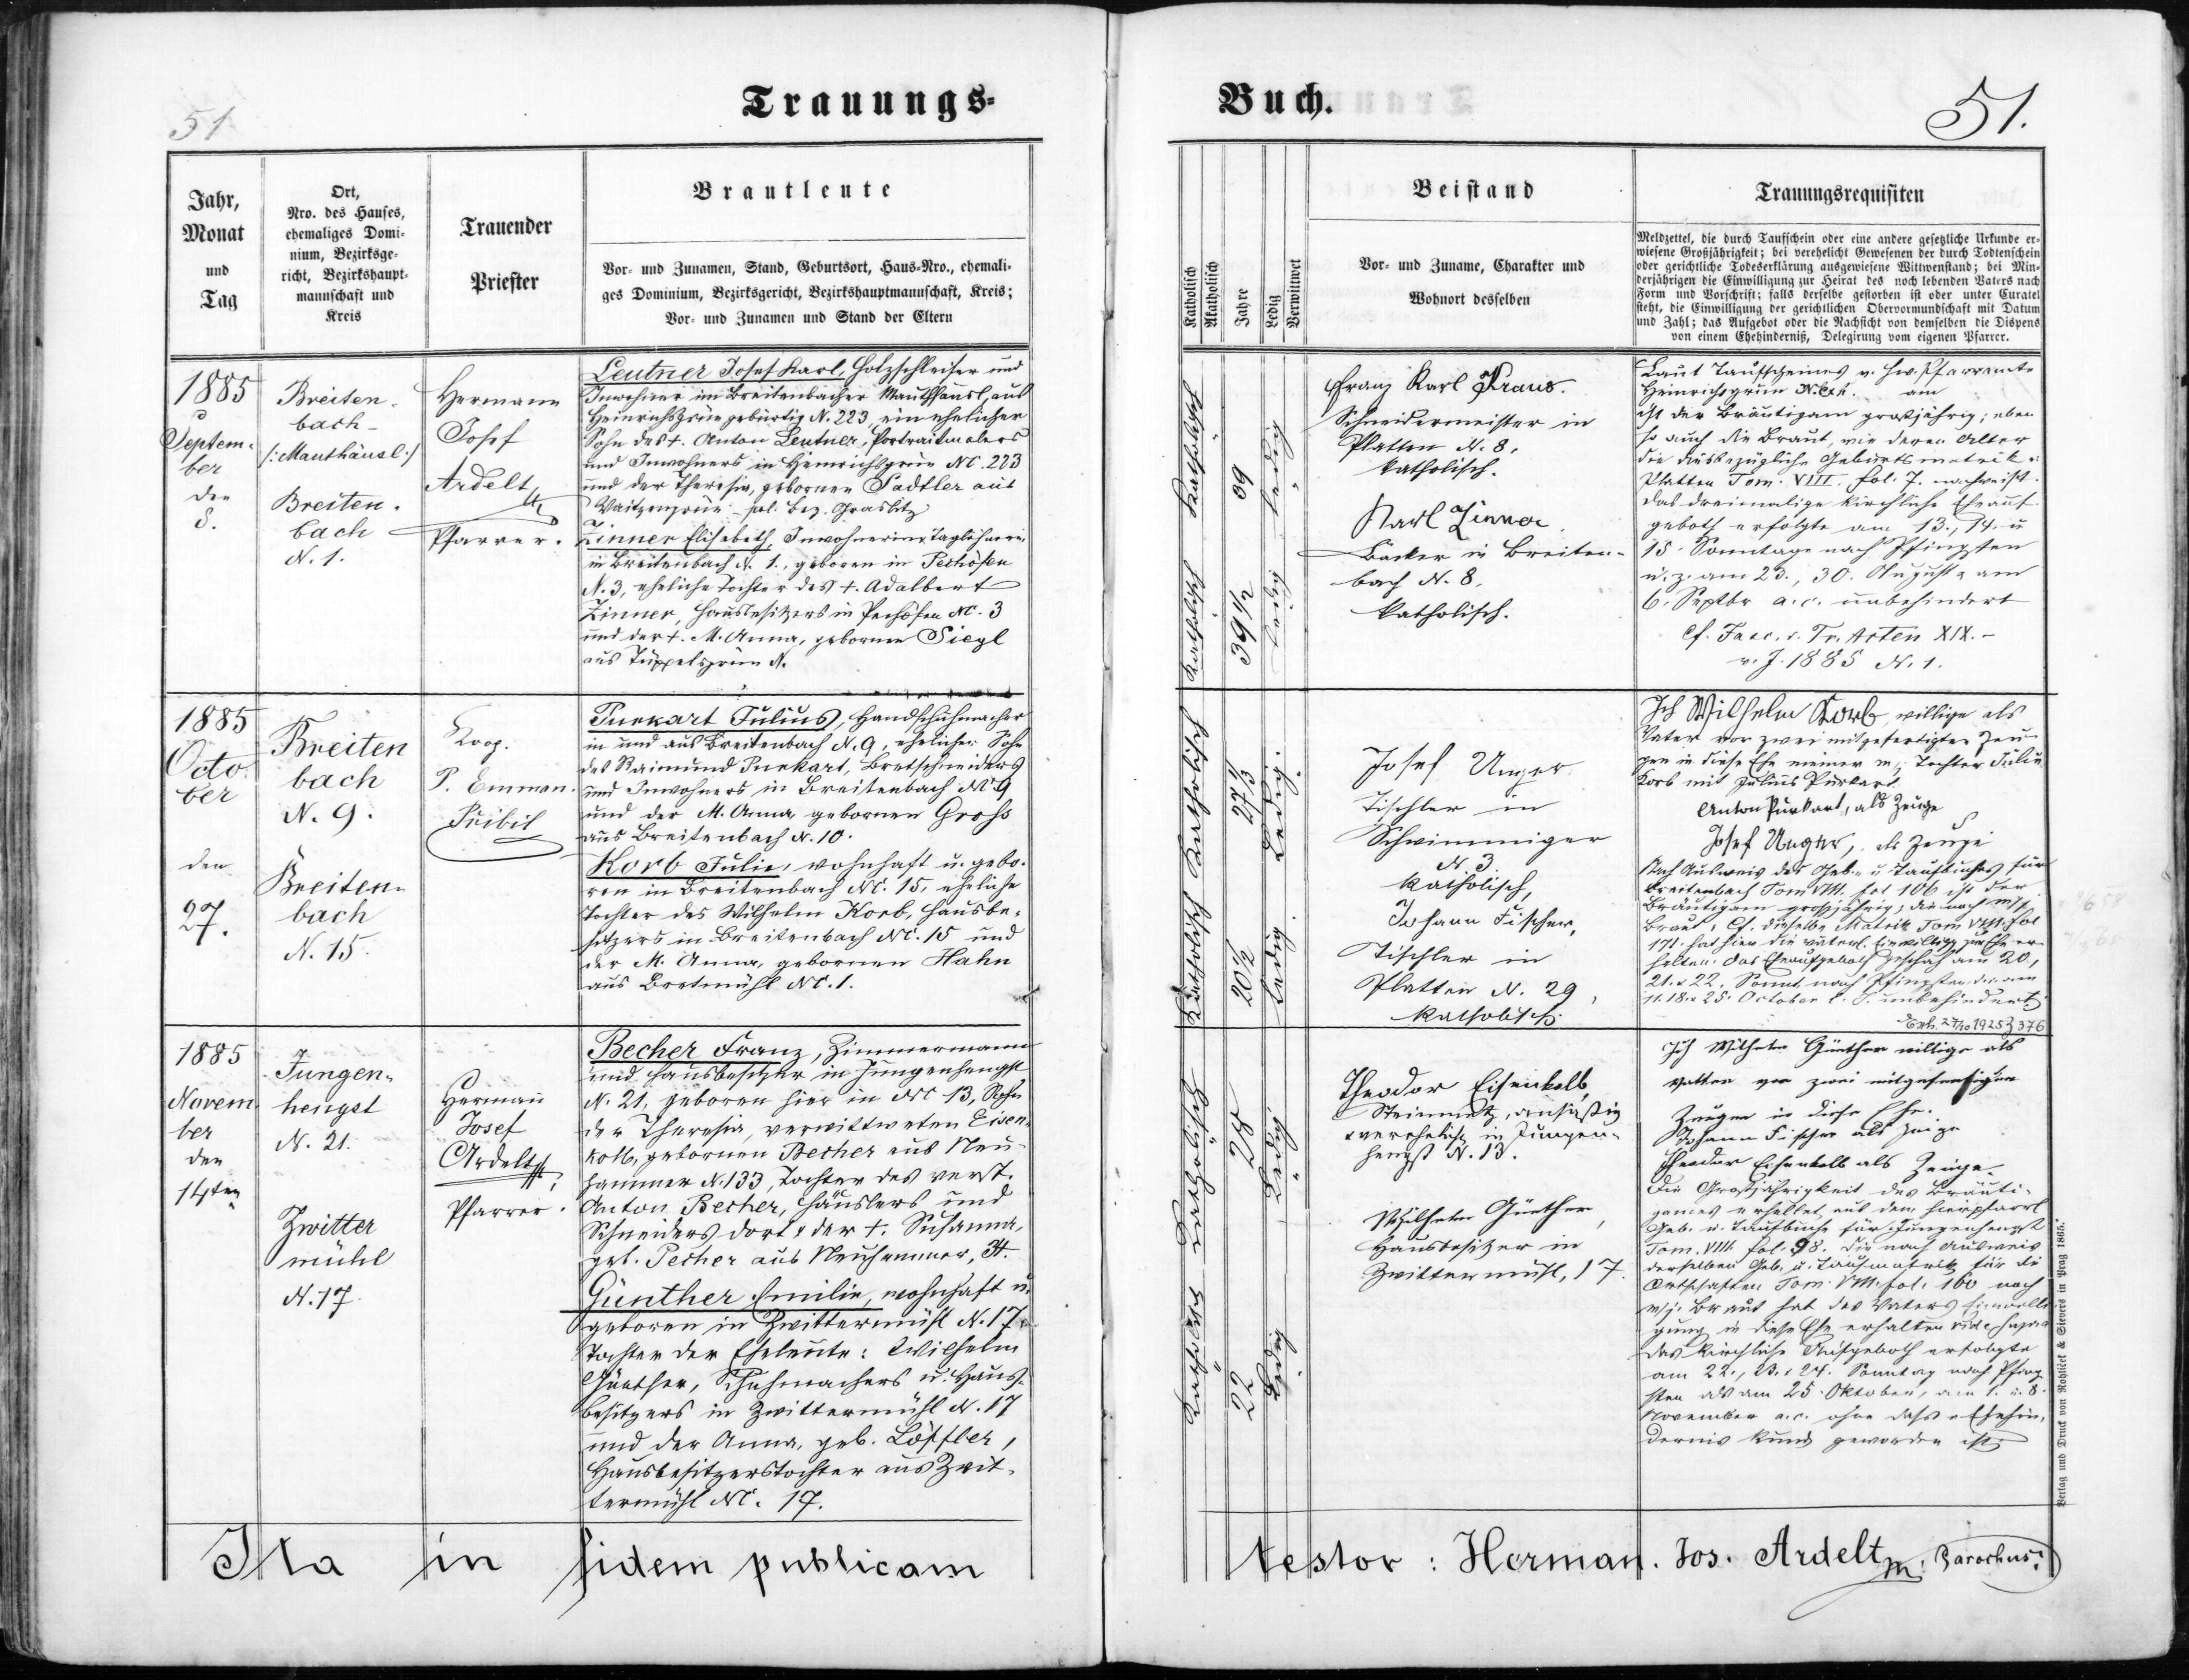 51
Trauungs-
Jahr,
Monat
und
Tag
Ort,
Nro. des Hauses,
ehemaliges Domi-
nium, Bezirksge-
richt, Bezirkshaupt-
mannschaft und
Kreis
Trauender
Priester
Brautleute
Vor- und Zunamen, Stand, Geburtsort, Haus-Nro., ehemali-
ges Dominium, Bezirksgericht, Bezirkshauptmannschaft, Kreis;
Vor- und Zunamen und Stand der Eltern
1885
Septem-
ber
den
8.
Breiten-
bach-
/:Mauthäusl:/
Breiten-
bach
N. 1.
Hermann
Josef
Ardelt
Pfarrer.
Leutner Josef Karl, Holzschleifer und
Inwohner im Breitenbacher Mauthhäusl, aus
Heinrichsgrün gebürtig N. 223, ein ehelicher
Sohn des +. Anton Leutner, Portraitmalers
und Inwohners in Heinrichsgrün NC. 223
und der Theresia, gebornen Sadtler aus
Waitzengrün pol. Bez. Graslitz
Zinner Elisabeth, Inwohnerin, Taglöhnerin
in Breitenbach N. 1., geboren in Pechöfen
N. 3, eheliche Tochter des +. Adalbert
Zinner, Hausbesitzers in Pechöfen NC. 3
und der +. M. Anna, gebornen Siegl
aus Tüppelsgrün N.
1885
Octo-
ber
den
27.
Breiten
bach
N. 9.
Breiten-
bach
N. 15.
Koop.
P. Emman.
Pribil
Purkart Julius, Handschuhmacher
in und aus Breitenbach N. 9, ehelicher Sohn
des Raimund Purkart, Bretschneiders
und Inwohners in Breitenbach NC 9
und der M. Anna, gebornen Gross
aus Breitenbach N. 10.
Korb Julie, wohnhaft u. gebo-
ren in Breitenbach NC. 15, eheliche
Tochter des Wilhelm Korb, Hausbe-
sitzers in Breitenbach NC. 15 und
der M. Anna, gebornen Hahn
aus Bretmühl NC. 1.
1885
Novem-
ber
den
14ten
Jungen-
hengst
N. 21.
Zwitter
mühl
N. 17.
Herman
Josef
Ardelt
Pfarrer.
Becher Franz, Zimmermann
und Hausbesitzer in Jungenhengst
N. 21, geboren hier in NC 13, Sohn
der Theresia, verwittweten Eisen-
kolb, gebornen Becher aus Neu-
hammer N. 133, Tochter des verst.
Anton Becher, Häuslers und
Schneiders dort & der +. Susanna,
geb. Pecher aus Neuhammer, N.
Günther Emilie, wohnhaft u.
geboren in Zwittermühl N. 17
Tochter der Eheleute: Wilhelm
Günther, Schuhmachers u. Haus-
besitzers in Zwittermühl N. 17
und der Anna, geb. Löffler,
Hausbesitzerstochter aus Zwit-
termühl NC. 17.
Ita in fidem publicam
Buch.
51.
Katholisch
Akatholisch
Jahre
Ledig
Verwitwet
Beistand
Vor- und Zuname, Charakter und
Wohnort desselben
Trauungsrequisiten
Meldzettel, die durch Taufschein oder eine andere gesetzliche Urkunde er-
wiesene Großjährigkeit; bei verehelicht Gewesenen der durch Todtenschein
oder gerichtliche Todeserklärung ausgewiesene Wittwenstand; bei Min-
derjährigen die Einwilligung zur Heirat des noch lebenden Vaters nach
Form und Vorschrift; falls derselbe gestorben ist oder unter Curatel
steht, die Einwilligung der gerichtlichen Obervormundschaft mit Datum
und Zahl; das Aufgebot oder die Nachsicht von demselben die Dispens
von einem Ehehinderniß, Delegirung vom eigenen Pfarrer.
Katholisch
Katholisch
39 1/2
ledig
ledig
Franz Karl Kraus.
Schneidermeister in
Platten N. 8.
katholisch.
Karl Zinner
Bäcker in Breiten-
bach N. 8.
katholisch.
Laut Taufscheines v. Hw. Pfarramte
Heinrichsgrün am
ist der Bräutigam großjährig; eben
so auch die Braut, wie deren Alter
die diesbezügliche Geburtsmatrik:
Platten Tom. VIII. fol. 7. nachweist.
Das dreimalige kirchliche Eheauf-
geboth erfolgte am 13., 14. u
15. Sonntage nach Pfingsten
u. z. am 23., 30. August & am
6. Septbr a. c. unbehindert
cf. Fasc. v. Tr. Acten XIX.-
v. J. 1885 N. 1.
Katholisch
Katholisch
27 1/3
20 1/2
Ledig.
Ledig.
Josef Unger
Tischler in
Schwimmiger
N. 3.
katholisch,
Johann Fischer,
Tischler in
Platten N. 29,
katholisch.
Ich Wilhelm Korb willige als
Vater vor zwei mitgefertigten Zeu-
gen in diese Ehe meiner m. j. Tochter Julie
Korb mit Julius Purkart.
Anton Purkart, als Zeuge
Josef Unger, als Zeuge
Nach Ausweis des Geb.- u Taufbuches für
Breitenbach Tom VIII. fol 106 ist der
Bräutigam großjährig; die noch m/j
Braut, Cf. dieselbe Matrik Tom VIII. fol
171. hat hier die väterl. Einwilligg zur Ehe er-
halten. Das Eheaufgeboth geschah am 20.,
21. & 22. Sonnt. nach Pfingsten, d. i. am
11. 18. & 25. October l. J. unbehindert.
Exh. 27/10 1925 Z 376
Katholisch
Katholisch
28
22
Ledig
Ledig
Theodor Eisenkolb,
Steinmetz, ansäßig
& verehelicht in Jungen-
hengst N. 13.
Wilhelm Günther,
Hausbesitzer in
Zwittermühl, 17.
Ich Wilhelm Günther willige als
Vatter vor zwei mitgefertigten
Zeugen in diese Ehe.
Johann Fischer als Zeuge
Theodor Eisenkolb als Zeuge
Die Großjährigkeit des Bräuti-
games erhellet aus dem hierpfarrl
Geb. u. Taufbuche für Jungenhengst
Tom. VIII. fol. 98. Die nach Ausweis
derselben Geb. u. Taufmatrik für die
Ortschaften Tom. VIII. fol. 160 noch
m/j. Braut hat des Vaters Einwilli-
gung in diese Ehe erhalten vide supra
Das kirchliche Aufgeboth erfolgte
am 22., 23. & 24. Sonntag nach Pfing
sten als am 25. Oktober, am 1. u. 8.
November a. c. ohne dass e. Ehehin-
dernis kund geworden ist.
Verlag und Druck von Rohlicek & Sievers in Prag 1865.
testor: Herman. Jos. Ardelt m. Parochus.